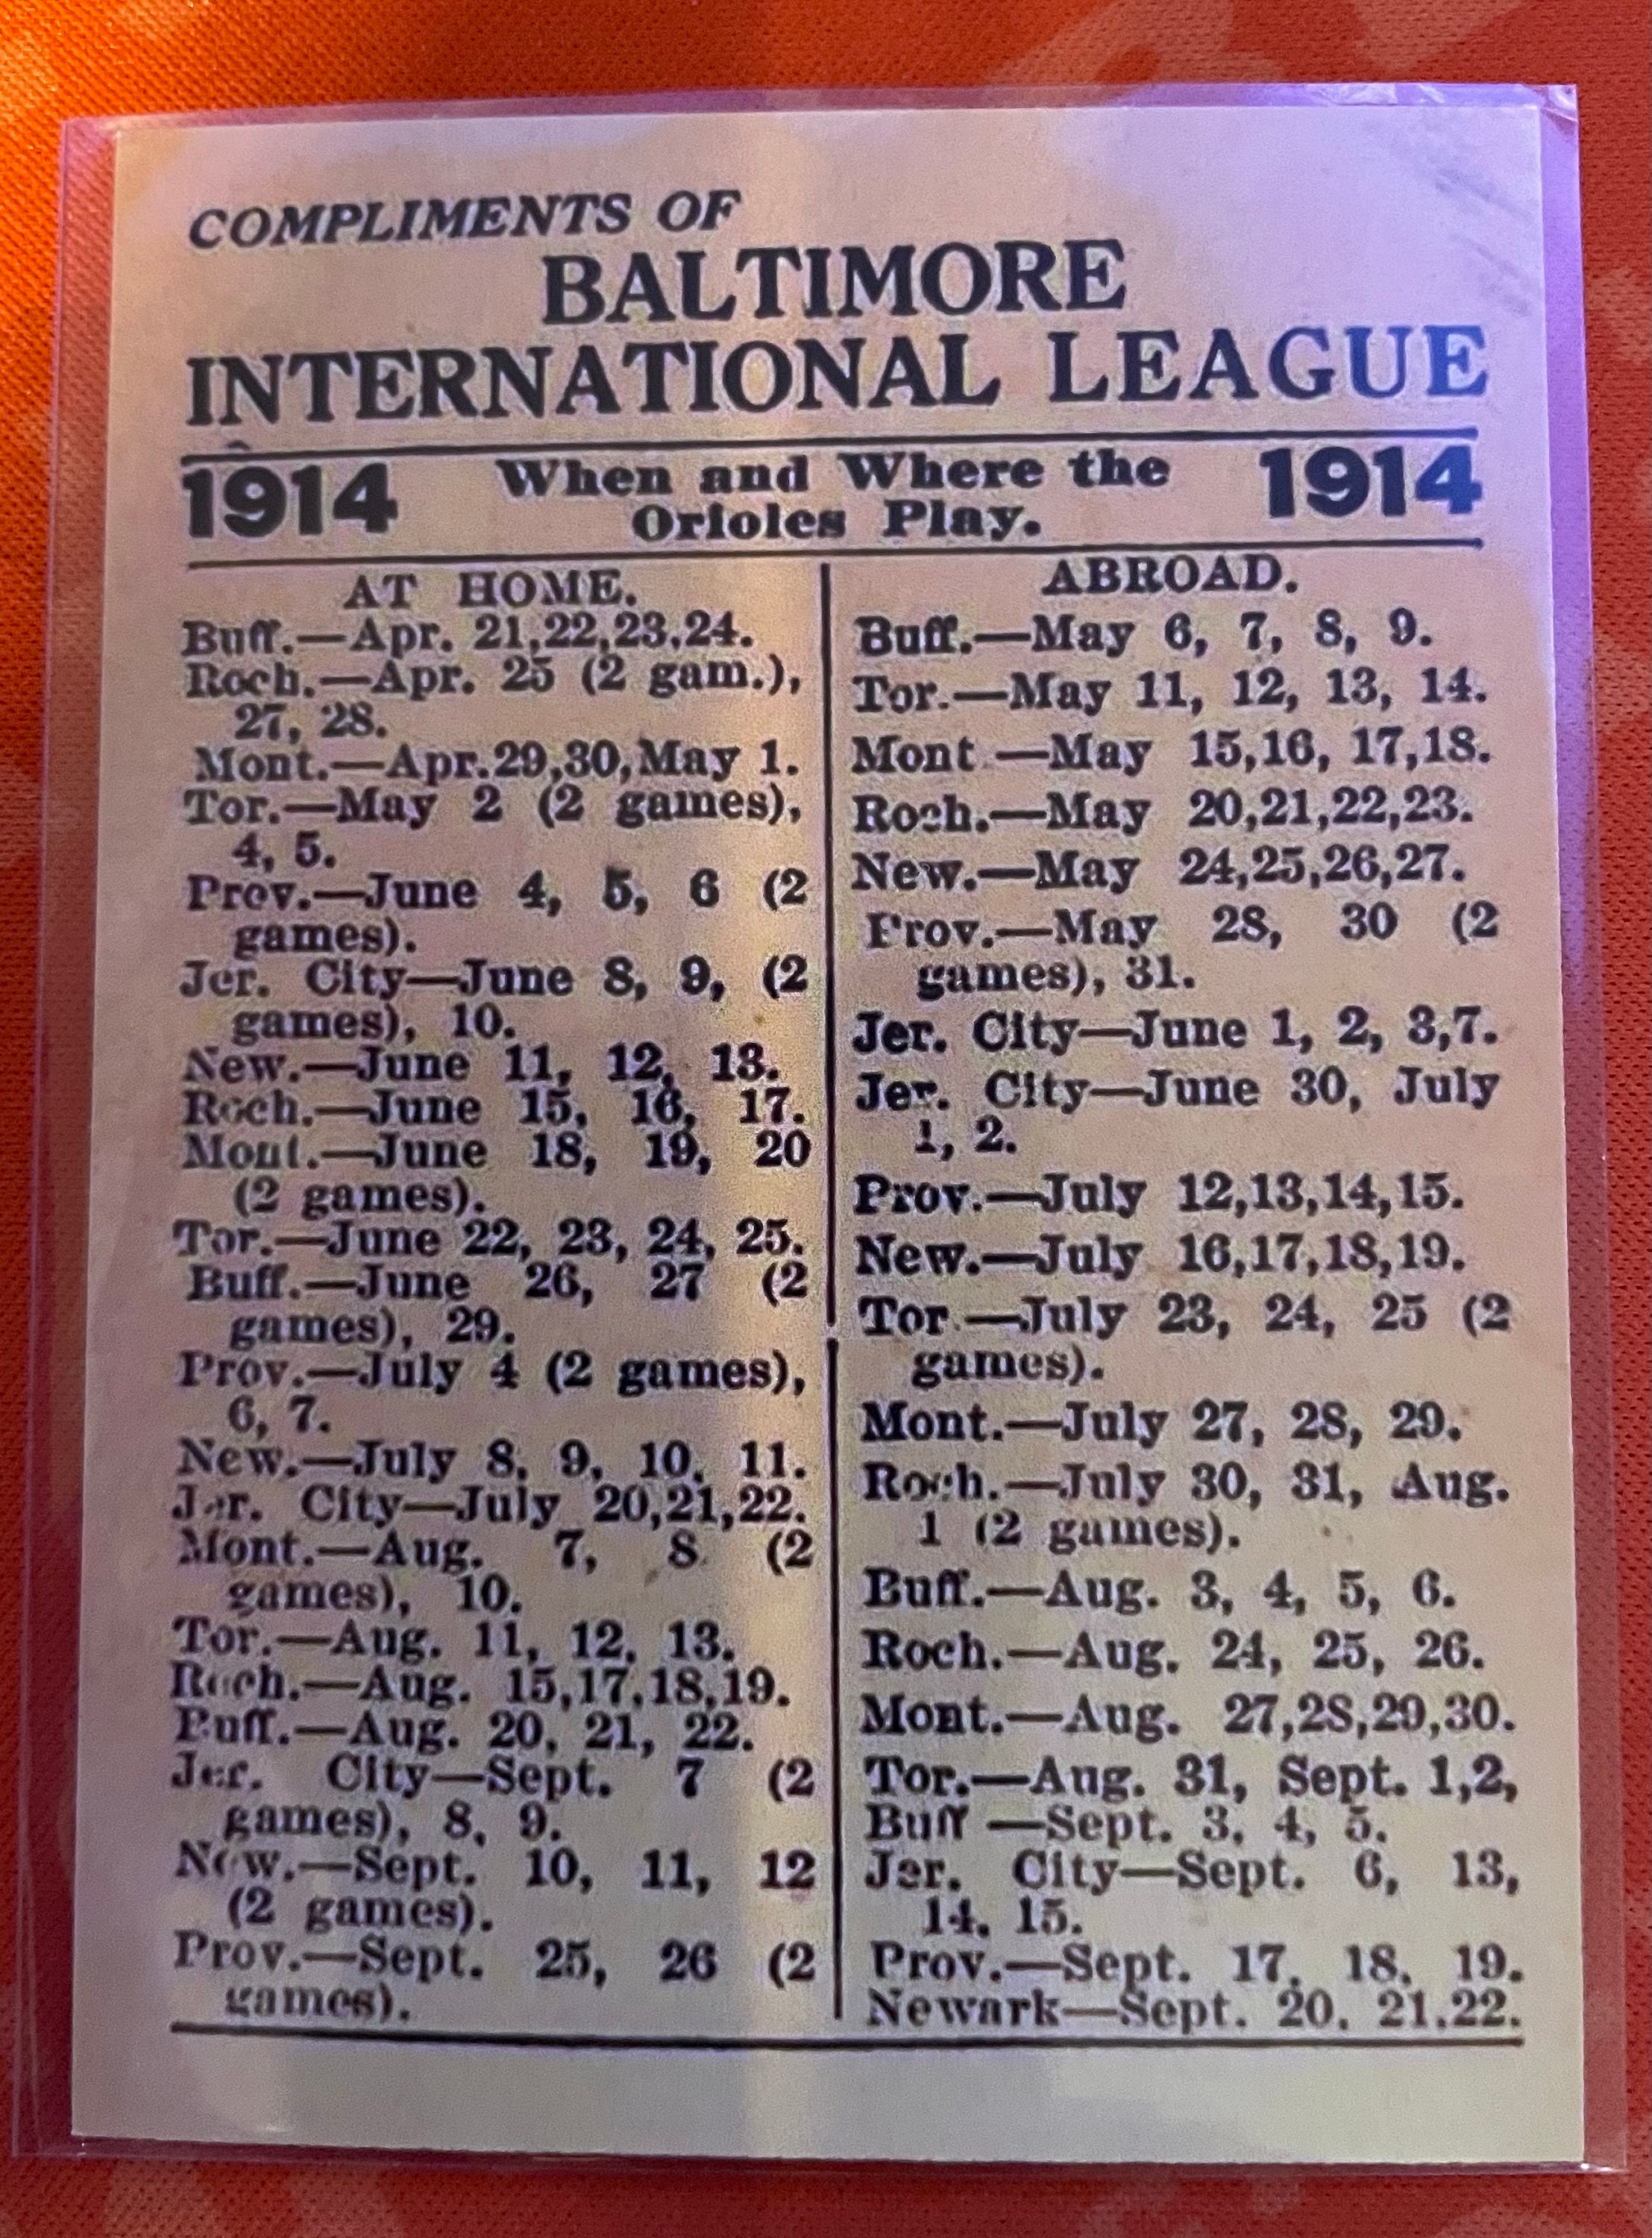 COMPLIMENTS OF
BALTIMORE
INTERNATIONAL LEAGUE
1914 When and Where the Orioles Play. 1914
AT HOME.
Buff.—Apr. 21,22,23,24.
Roch.—Apr. 25 (2 gam.),
27, 28.
Mont.—Apr.29,30,May 1.
Tor.—May 2 (2 games),
4, 5.
Prov.—June 4, 5, 6 (2
games).
Jer. City—June 8, 9, (2
games), 10.
New.—June 11, 12, 13.
Roch.—June 15, 16, 17.
Mont.—June 18, 19, 20
(2 games).
Tor.—June 22, 23, 24, 25.
Buff.—June 26, 27 (2
games), 29.
Prov.—July 4 (2 games),
6, 7.
New.—July 8, 9, 10, 11.
Jer. City—July 20,21,22.
Mont.—Aug. 7, 8 (2
games), 10.
Tor.—Aug. 11, 12, 13.
Roch.—Aug. 15,17,18,19.
Buff.—Aug. 20, 21, 22.
Jer. City—Sept. 7 (2
games), 8, 9.
New.—Sept. 10, 11, 12
(2 games).
Prov.—Sept. 25, 26 (2
games).
ABROAD.
Buff.—May 6, 7, 8, 9.
Tor.—May 11, 12, 13, 14.
Mont.—May 15,16, 17,18.
Roch.—May 20,21,22,23.
New.—May 24,25,26,27.
Prov.—May 28, 30 (2
games), 31.
Jer. City—June 1, 2, 3,7.
Jer. City—June 30, July
1, 2.
Prov.—July 12,13,14,15.
New.—July 16,17,18,19.
Tor.—July 23, 24, 25 (2
games).
Mont.—July 27, 28, 29.
Roch.—July 30, 31, Aug.
1 (2 games).
Buff.—Aug. 3, 4, 5, 6.
Roch.—Aug. 24, 25, 26.
Mont.—Aug. 27,28,29,30.
Tor.—Aug. 31, Sept. 1,2,
Buff —Sept. 3, 4, 5.
Jer. City—Sept. 6, 13,
14, 15.
Prov.—Sept. 17, 18, 19.
Newark—Sept. 20, 21,22.